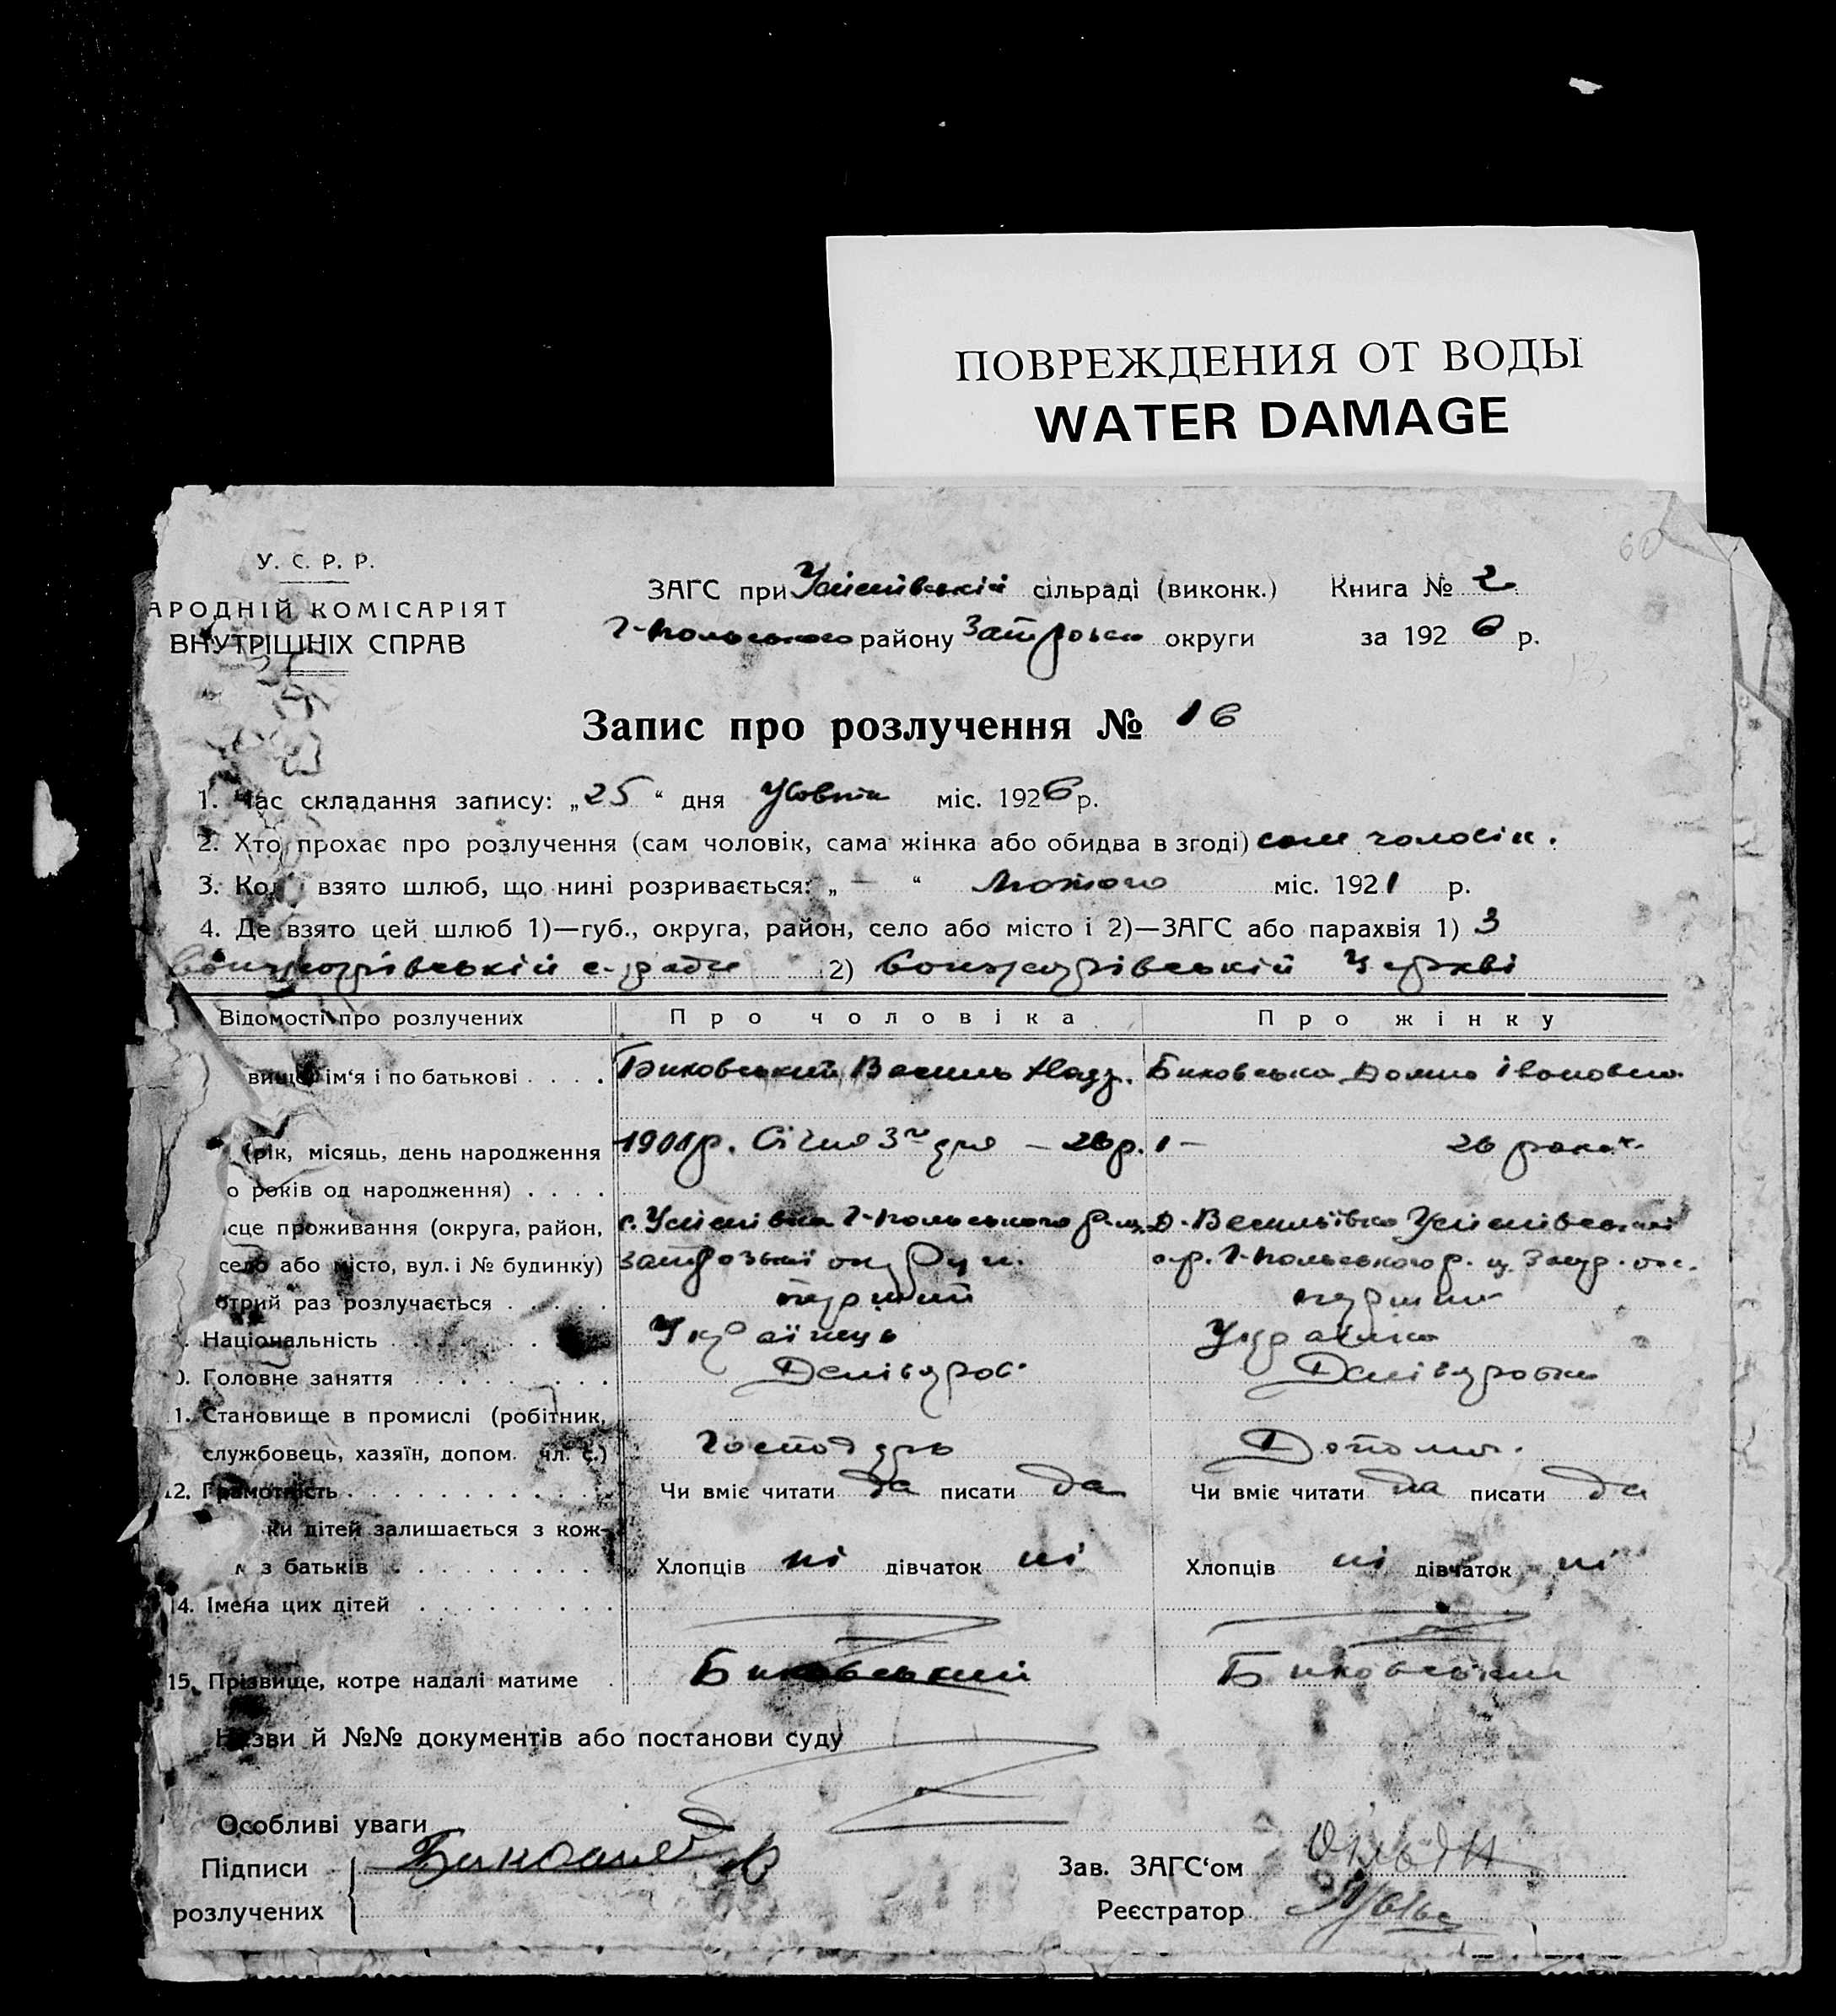 ПОВРЕЖДЕНИЯ ОТ ВОДЫ
WATER DAMAGE
60
У. С. Р. Р.
АРОДНІЙ КОМІСАРІЯТ
ВНУТРІШНІХ СПРАВ
ЗАГС при Успенівській сільраді (виконк.) Книга № 2
Г-Польського району округи за 1926 р.
Запис про розлучення № 16
1. Час складання запису: „25“ дня Жовтня міс. 1926 р.
2. Хто прохає про розлучення (сам чоловік, сама жінка або обидва в згоді) сам чоловік.
3. Ко взято шлюб, що нині розривається: „ — “ Лютого міс. 1921 р.
4. Де взято цей шлюб 1)—губ., округа, район, село або місто і 2)—ЗАГС або парахвія 1) З
с-ради 2) Церкві
Відомості про розлучених Про чоловіка Про жінку
вище ім‘я і по батькові . . . . Биковський Василь Биковська Домна Івановна
(рік, місяць, день народження 1901 р. Січня 3го дня — 26 р. 26 років
о років од народження) . . . .
ісце проживання (округа, район, с. Успенівка Г-Польського Успенівської
село або місто, вул. і № будинку) округи. Г-Польського р.
отрий раз розлучається . . . . . перший перший
. Національність . . . . Українець Українка
0. Головне заняття . . . . . . . . .
1. Становище в промислі (робітник,
службовець, хазяїн, допом. чл. с.) Господарь Допомог.
12. Грамотність . . . . . . . . . . . . Чи вміє читати да писати да Чи вміє читати да писати да
ки дітей залишається з кож-
м з батьків . . . . . . . . . Хлопців ні дівчаток ні Хлопців ні дівчаток ні
14. Імена цих дітей . . . . . . . . .
15. Прізвище, котре надалі матиме . Биковський Биковський
Назви й №№ документів або постанови суду
Особливі уваги
Підписи Зав. ЗАГС‘ом
розлучених Реєстратор